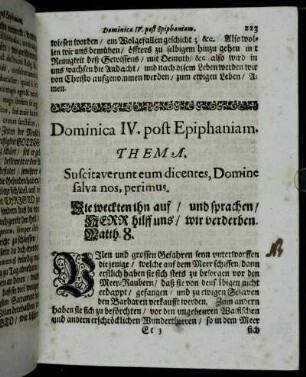 Dominica IV. post Epiphaniam. 223
wiesen worden / ein Wolgefallen geschicht; &c. Also wol-
len wir uns bemühen / öffters zu selbigem hinzu gehen mit
Reinigkeit deß Gewissens / mit Demuth / &c. also wird in
uns wachsen die Andacht / und nach disem Leben werden wir
von Christo auffgenommen werden / zum ewigen Leben / A-
men.
Dominica IV. post Epiphaniam.
THEMA.
Suscitaverunt eum dicentes, Domine
salva nos, perimus.
Sie weckten ihn auf / und sprachen /
HERR hilff uns / wir verderben.
Matth. 8.
Vilen und grossen Gefahren seyn unterworffen
diejenige / welche auf dem Meer schiffen dann
erstlich haben sie sich stets zu besorgen vor den
Meer-Raubern / daß sie von denselbigen nicht
erdappt / gefangen / und zu ewigen Sclaven
den Barbaren verkaufft werden. Zum andern
haben sie sich zu beförchten / vor den ungeheuren Walfischen
und andern erschröcklichen Wunderthieren / so in dem Meer
sich